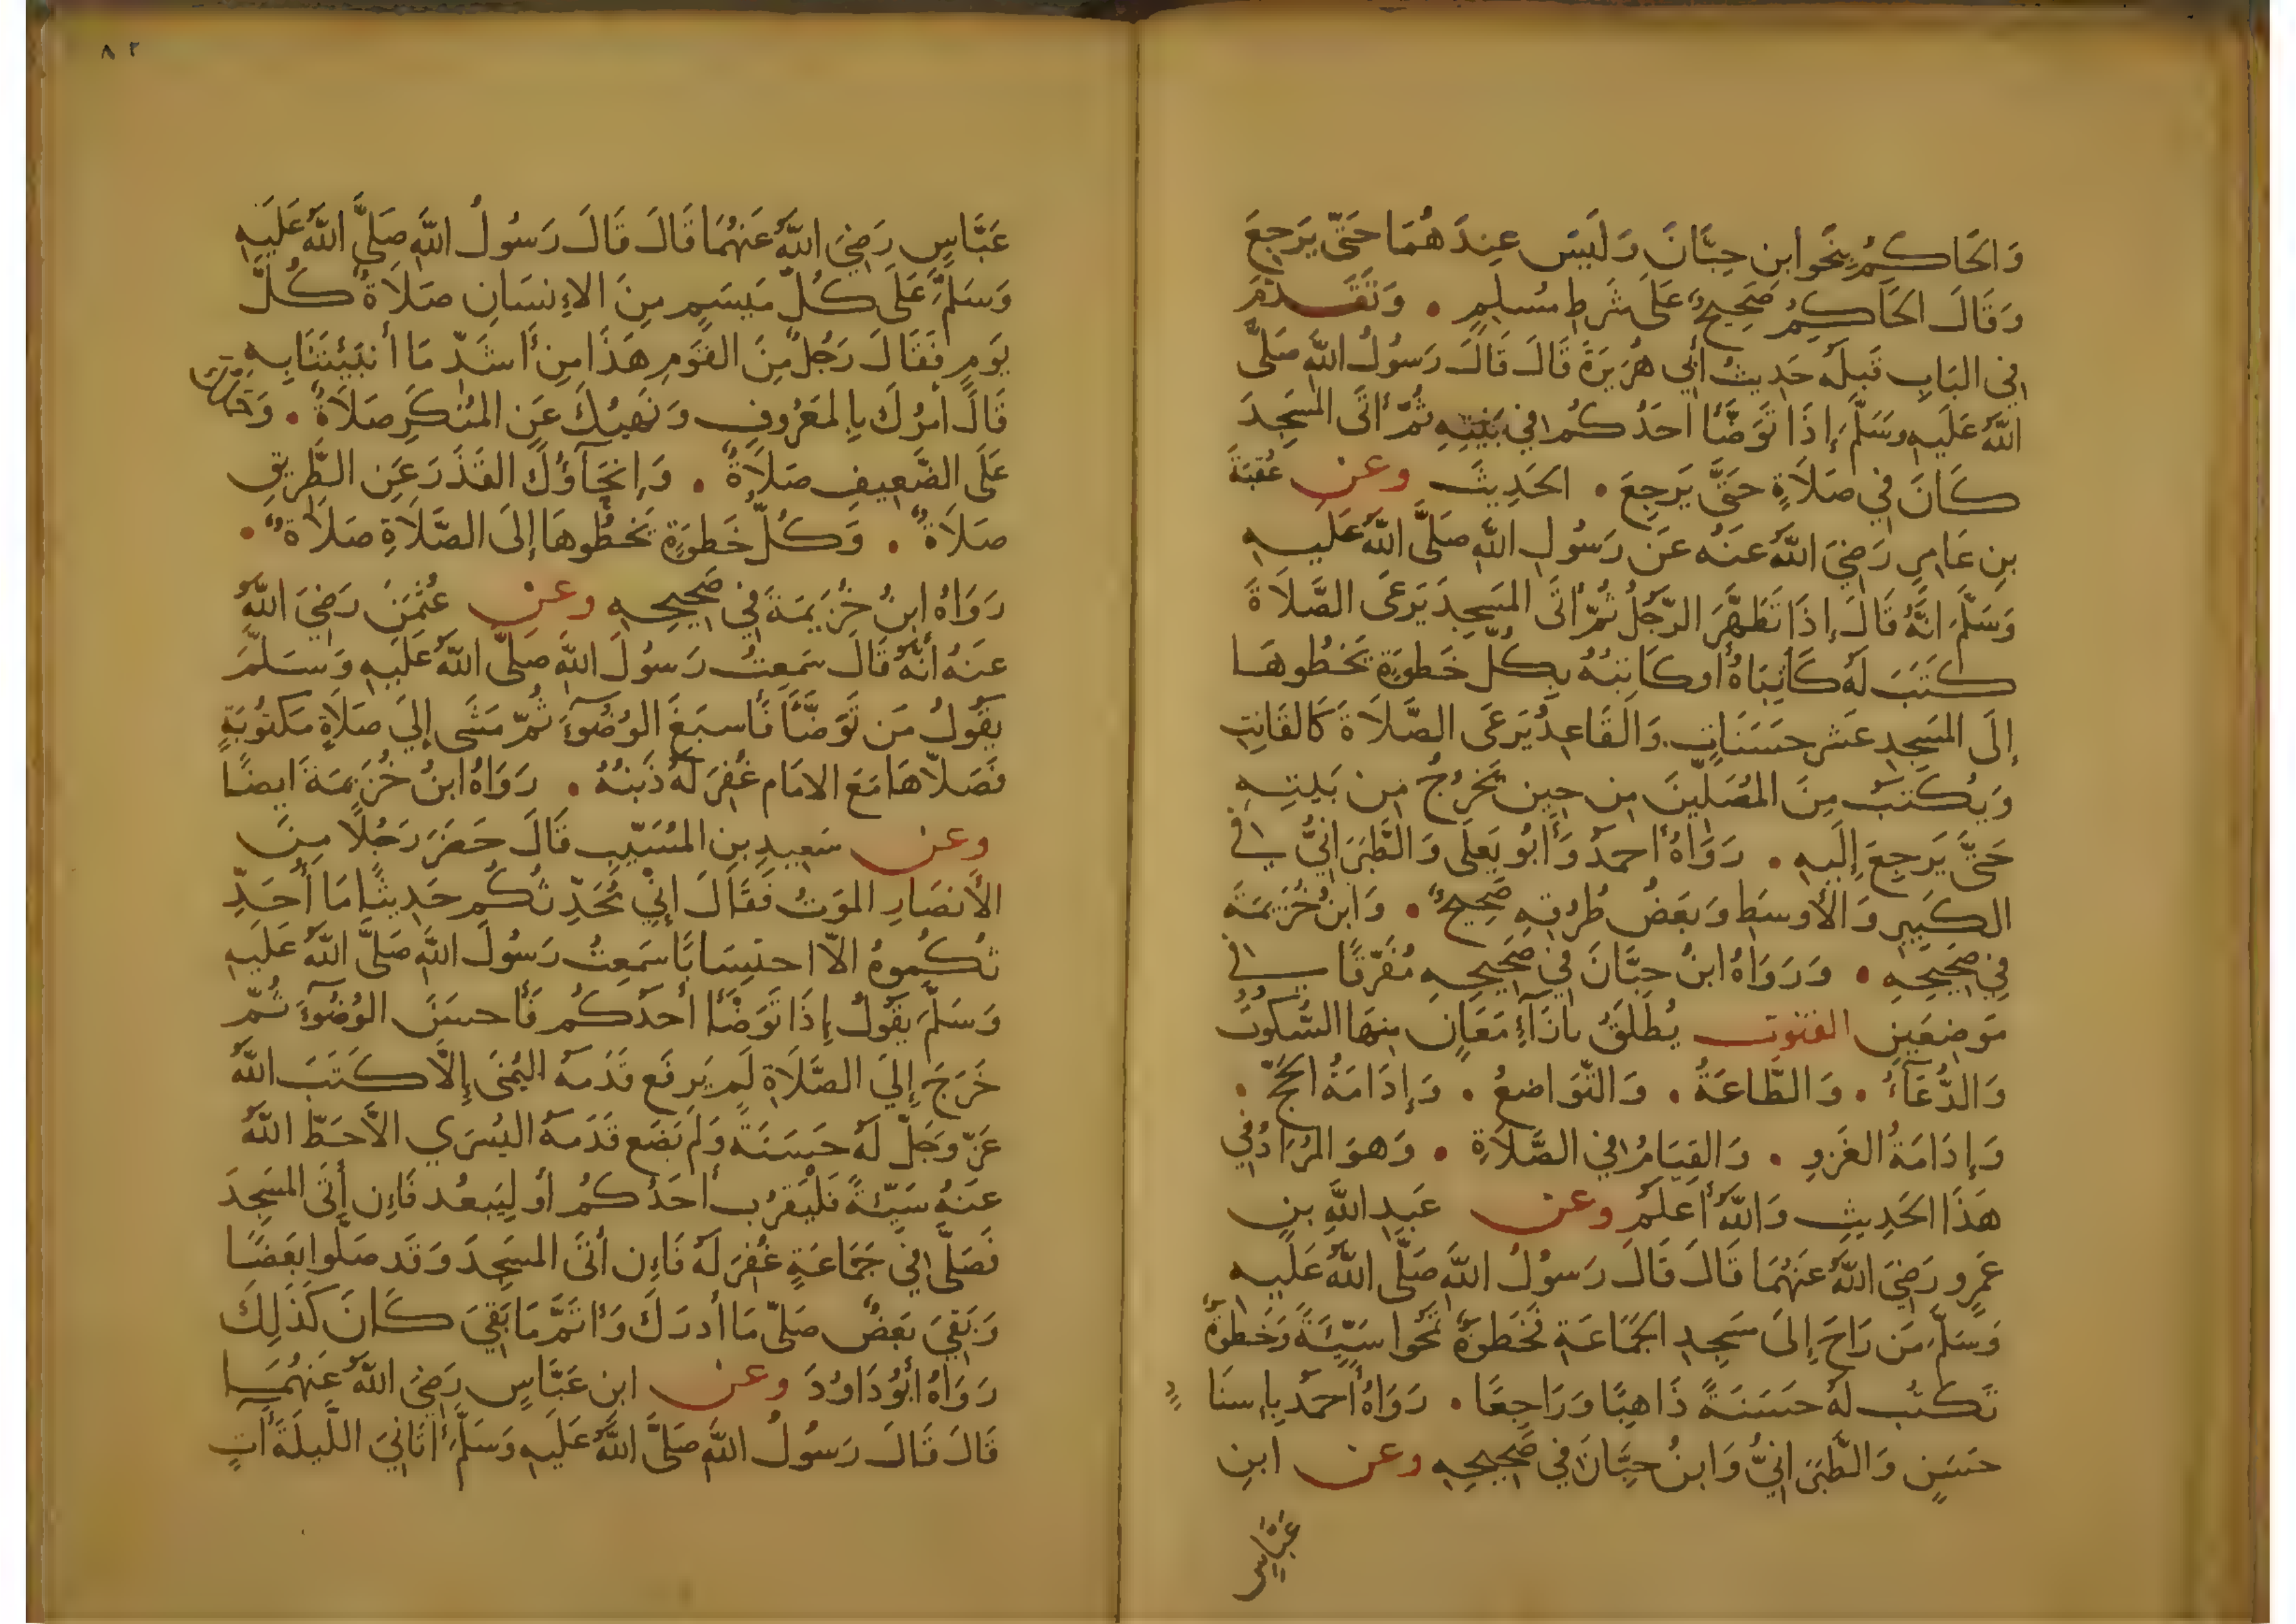 وَالحَاكِمُ بِنَحوِ ابنِ حِبَّانَ وَلَيسَ عِندَهُمَا حَتَّى يَرجِعَ
وَقَالَ الحَاكِمُ صَحِيحٌ عَلَى شَرطِ مُسلِمٍ • وَتَقَدَّمَ
فِي البَابِ قَبلَهُ حَدِيثُ أَبِي هُرَيرَةَ قَالَ قَالَ رَسُولُ اللَّهِ صَلَّى
اللَّهُ عَلَيهِ وَسَلَّمَ إِذَا تَوَضَّأَ أَحَدُكُم فِي بَيتِهِ ثُمَّ أَتَى المَسجِدَ
كَانَ فِي صَلَاةٍ حَتَّى يَرجِعَ • الحَدِيثَ وعن عُقبَةَ
بنِ عَامِرٍ رَضِيَ اللَّهُ عَنهُ عَن رَسُولِ اللَّهِ صَلَّى اللَّهُ عَلَيهِ
وَسَلَّمَ أَنَّهُ قَالَ إِذَا تَطَهَّرَ الرَّجُلُ ثُمَّ أَتَى المَسجِدَ يَرعَى الصَّلَاةَ
كَتَبَ لَهُ كَاتِبَاهُ أَو كَاتِبُهُ بِكُلِّ خَطوَةٍ يَخطُوهَا
إِلَى المَسجِدِ عَشرَ حَسَنَاتٍ. وَالقَاعِدُ يَرعَى الصَّلَاةَ كَالقَانِتِ
وَيُكتَبُ مِنَ المُصَلِّينَ مِن حِينِ يَخرُجُ مِن بَيتِهِ
حَتَّى يَرجِعَ إِلَيهِ • رَوَاهُ أَحمَدُ وَأَبُو يَعلَى وَالطَّبَرَانِيُّ فِي
الكَبِيرِ وَالأَوسَطِ وَبَعضُ طُرُقِهِ صَحِيحٌ • وَابنُ خُزَيمَةَ
فِي صَحِيحِهِ • وَرَوَاهُ ابنُ حِبَّانَ فِي صَحِيحِهِ مُفَرَّقًا فِي
مَوضِعَينِ القنوت يُطلَقُ بِازَآءِ مَعَانٍ مِنهَا السُّكُوتُ
وَالدُّعَآءُ • وَالطَّاعَةُ • وَالتَّوَاضِعُ • وَإِدَامَةُ الحَجِّ •
وَإِدَامَةُ الغَزوِ • وَالقِيَامُ فِي الصَّلَاةِ • وَهوَ المُرَادُ فِي
هَذَا الحَدِيثِ وَاللَّهُ أَعلَمُ وعن عَبدِ اللَّهِ بنِ
عَمرٍو رَضِيَ اللَّهُ عَنهُمَا قَالَ قَالَ رَسُولُ اللَّهِ صَلَّى اللَّهُ عَلَيهِ
وَسَلَّمَ مَن رَاحَ إِلَى مَسجِدِ الجَمَاعَةِ فَخَطوَةٌ تَمحُوا سَيِّئَةً وَخَطوَةٌ
تَكتُبُ لَهُ حَسَنَةً ذَاهِبًا وَرَاجِعًا • رَوَاهُ أَحمَدُ بِإِسنَادٍ
حَسَنٍ وَالطَّبَرَانِيُّ وَابنُ حِبَّانَ فِي صَحِيحِهِ وعن ابنِ
عَبَّاسٍ
٨٢
عَبَّاسٍ رَضِيَ اللَّهُ عَنهُمَا قَالَ قَالَ رَسُولُ اللَّهِ صَلَّى اللَّهُ عَلَيهِ
وَسَلَّمَ عَلَى كُلِّ مَيسَمٍ مِنَ الإِنسَانِ صَلَاةٌ كُلَّ
يَومٍ فَقَالَ رَجُلٌ مِنَ القَومِ هَذَا مِن أَشَدِّ مَا أَنبَئتَنَا بِهِ
قَالَ أَمرُكَ بِالمَعرُوفِ وَنَهيُكَ عَنِ المُنكَرِ صَلَاةٌ • وَحَملُكَ
عَلَى الضَّعِيفِ صَلَاةٌ • وَإِنحَآؤُكَ القَذَرَ عَنِ الطَّرِيقِ
صَلَاةٌ • وَكُلُّ خَطوَةٍ تَخطُوهَا إِلَى الصَّلَاةِ صَلَاةٌ •
رَوَاهُ ابنُ خُزَيمَةَ فِي صَحِيحِهِ وعن عُثمَنَ رَضِيَ اللَّهُ
عَنهُ أَنَّهُ قَالَ سَمِعتُ رَسُولَ اللَّهِ صَلَّى اللَّهُ عَلَيهِ وَسَلَّمَ
يَقُولُ مَن تَوَضَّأَ فَأَسبَغَ الوُضُوٓءَ ثُمَّ مَشَى إِلَى صَلَاةٍ مَكتُوبَةٍ
فَصَلَّاهَا مَعَ الامَامِ غُفِرَ لَهُ ذَنبُهُ • رَوَاهُ ابنُ خُزَيمَةَ ايضًا
وعن سَعِيدِ بنِ المُسَيِّبِ قَالَ حَضَرَ رَجُلًا مِنَ
الأَنصَارِ المَوتُ فَقَالَ إِنِّي مُحَدِّثُكُم حَدِيثًا مَا أُحَدِّ
ثُكُمُوهُ الَّا احتِسَابًا سَمِعتُ رَسُولَ اللَّهِ صَلَّى اللَّهُ عَلَيهِ
وَسَلَّمَ يَقُولُ إِذَا تَوَضَّأَ أَحَدُكُم فَأَحسَنَ الوُضُوٓءَ ثُمَّ
خَرَجَ إِلَى الصَّلَاةِ لَم يَرفَع قَدَمَهُ اليُمنَى إِلَّا كَتَبَ اللَّهُ
عَزَّ وَجَلَّ لَهُ حَسَنَةً وَلَم يَضَع قَدَمَهُ اليُسرَي الَّا حَطَّ اللَّهُ
عَنهُ سَيِّئَةً فَليَقرُب أَحَدُكُم أَو لِيَبعُد فَإِن أَتَى المَسجِدَ
فَصَلَّى فِي جَمَاعَةٍ غُفِرَ لَهُ فَإِن أَتَى المَسجِدَ وَقَد صَلَّوا بَعضًا
وَبَقِيَ بَعضٌ صَلَّى مَا أَدرَكَ وَأَتَمَّ مَا بَقِيَ كَانَ كَذَلِكَ
رَوَاهُ أَبُو دَاوُدَ وعن ابنِ عَبَّاسٍ رَضِيَ اللَّهُ عَنهُمَا
قَالَ قَالَ رَسُولُ اللَّهِ صَلَّى اللَّهُ عَلَيهِ وَسَلَّمَ أَتَانِيَ اللَّيلَةَ آتٍ